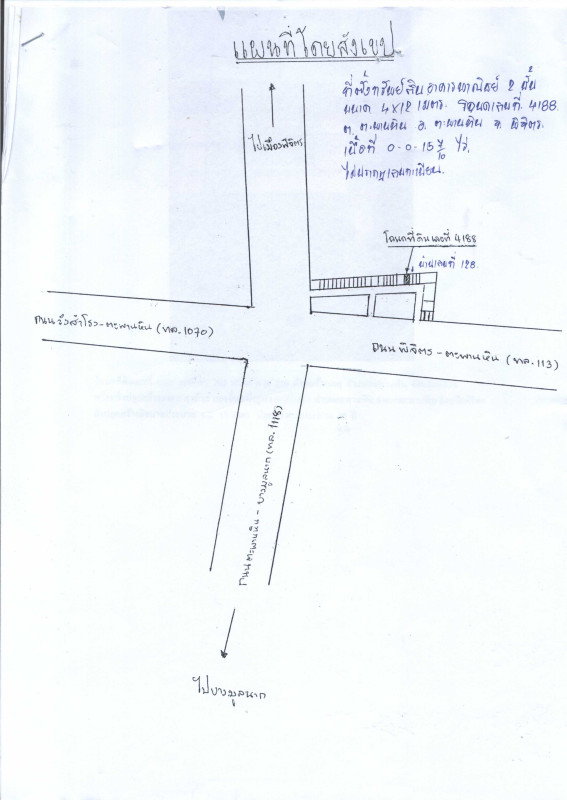 แผนที่โดยสังเขป
ที่ตั้งทรัพย์สิน อาคารพาณิชย์ 2 ชั้น
ขนาด 4x12 เมตร. โฉนดเลขที่. 4188.
ต. ตะพานหิน อ. ตะพานหิน จ. พิจิตร.
เนื้อที่ 0-0-15 9/10 ไร่.
ไม่ปรากฏเลขทะเบียน.
ไปเมืองพิจิตร
โฉนดที่ดินเลขที่ 4188
บ้านเลขที่ 128.
ถนนวังสำโรง-ตะพานหิน (ทล.1070)
ถนนพิจิตร-ตะพานหิน (ทล.113)
ถนนตะพานหิน - บางมูลนาก (ทล.1118)
ไปบางมูลนาก